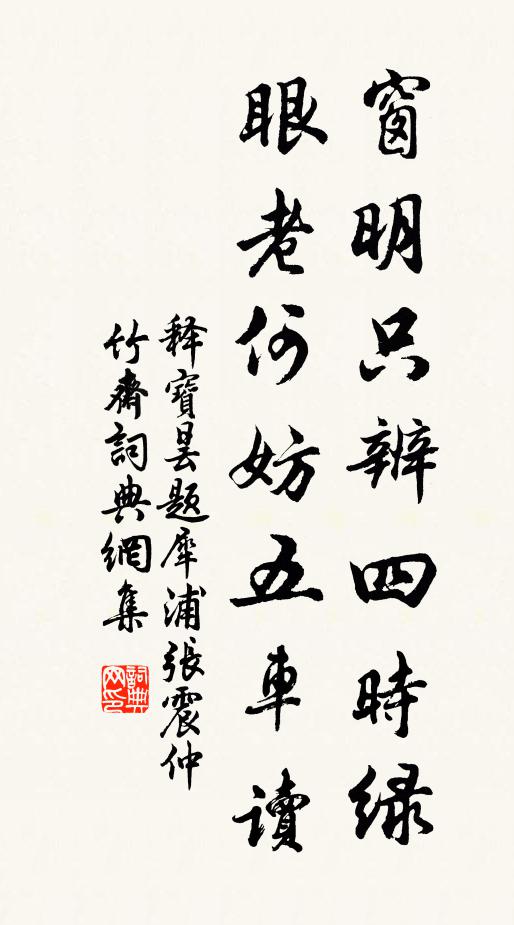 窗明只辨四時绿
眼老何妨五車讀
释寶曇题犀浦張震仲
竹齋詞典網集
詞典
网印